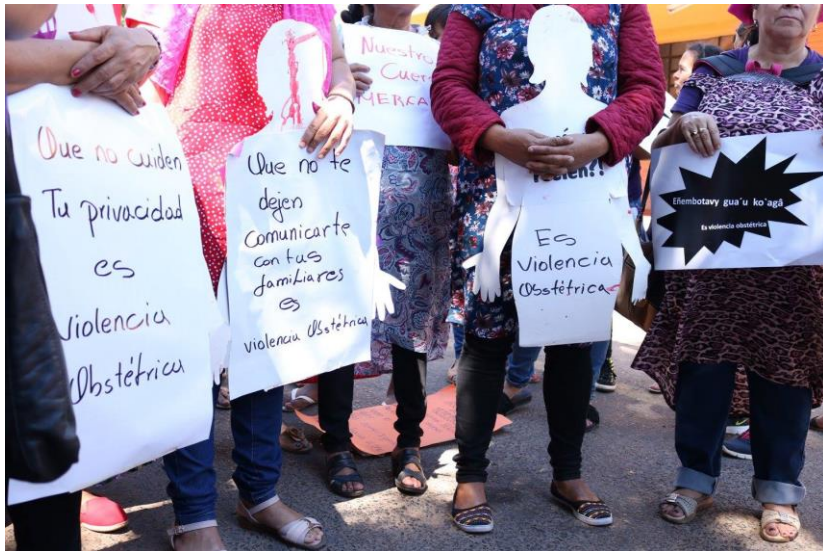 Que no cuiden
Tu privacidad
es
violencia
Obstétrica
Que no te
dejen
comunicarte
con tus
familiares
es
violencia Obstétrica
Nuestro
Cuer
MERCA
Es
Violencia
Obstétrica
Eñembotavy gua´u ko´agâ
Es violencia obstétrica